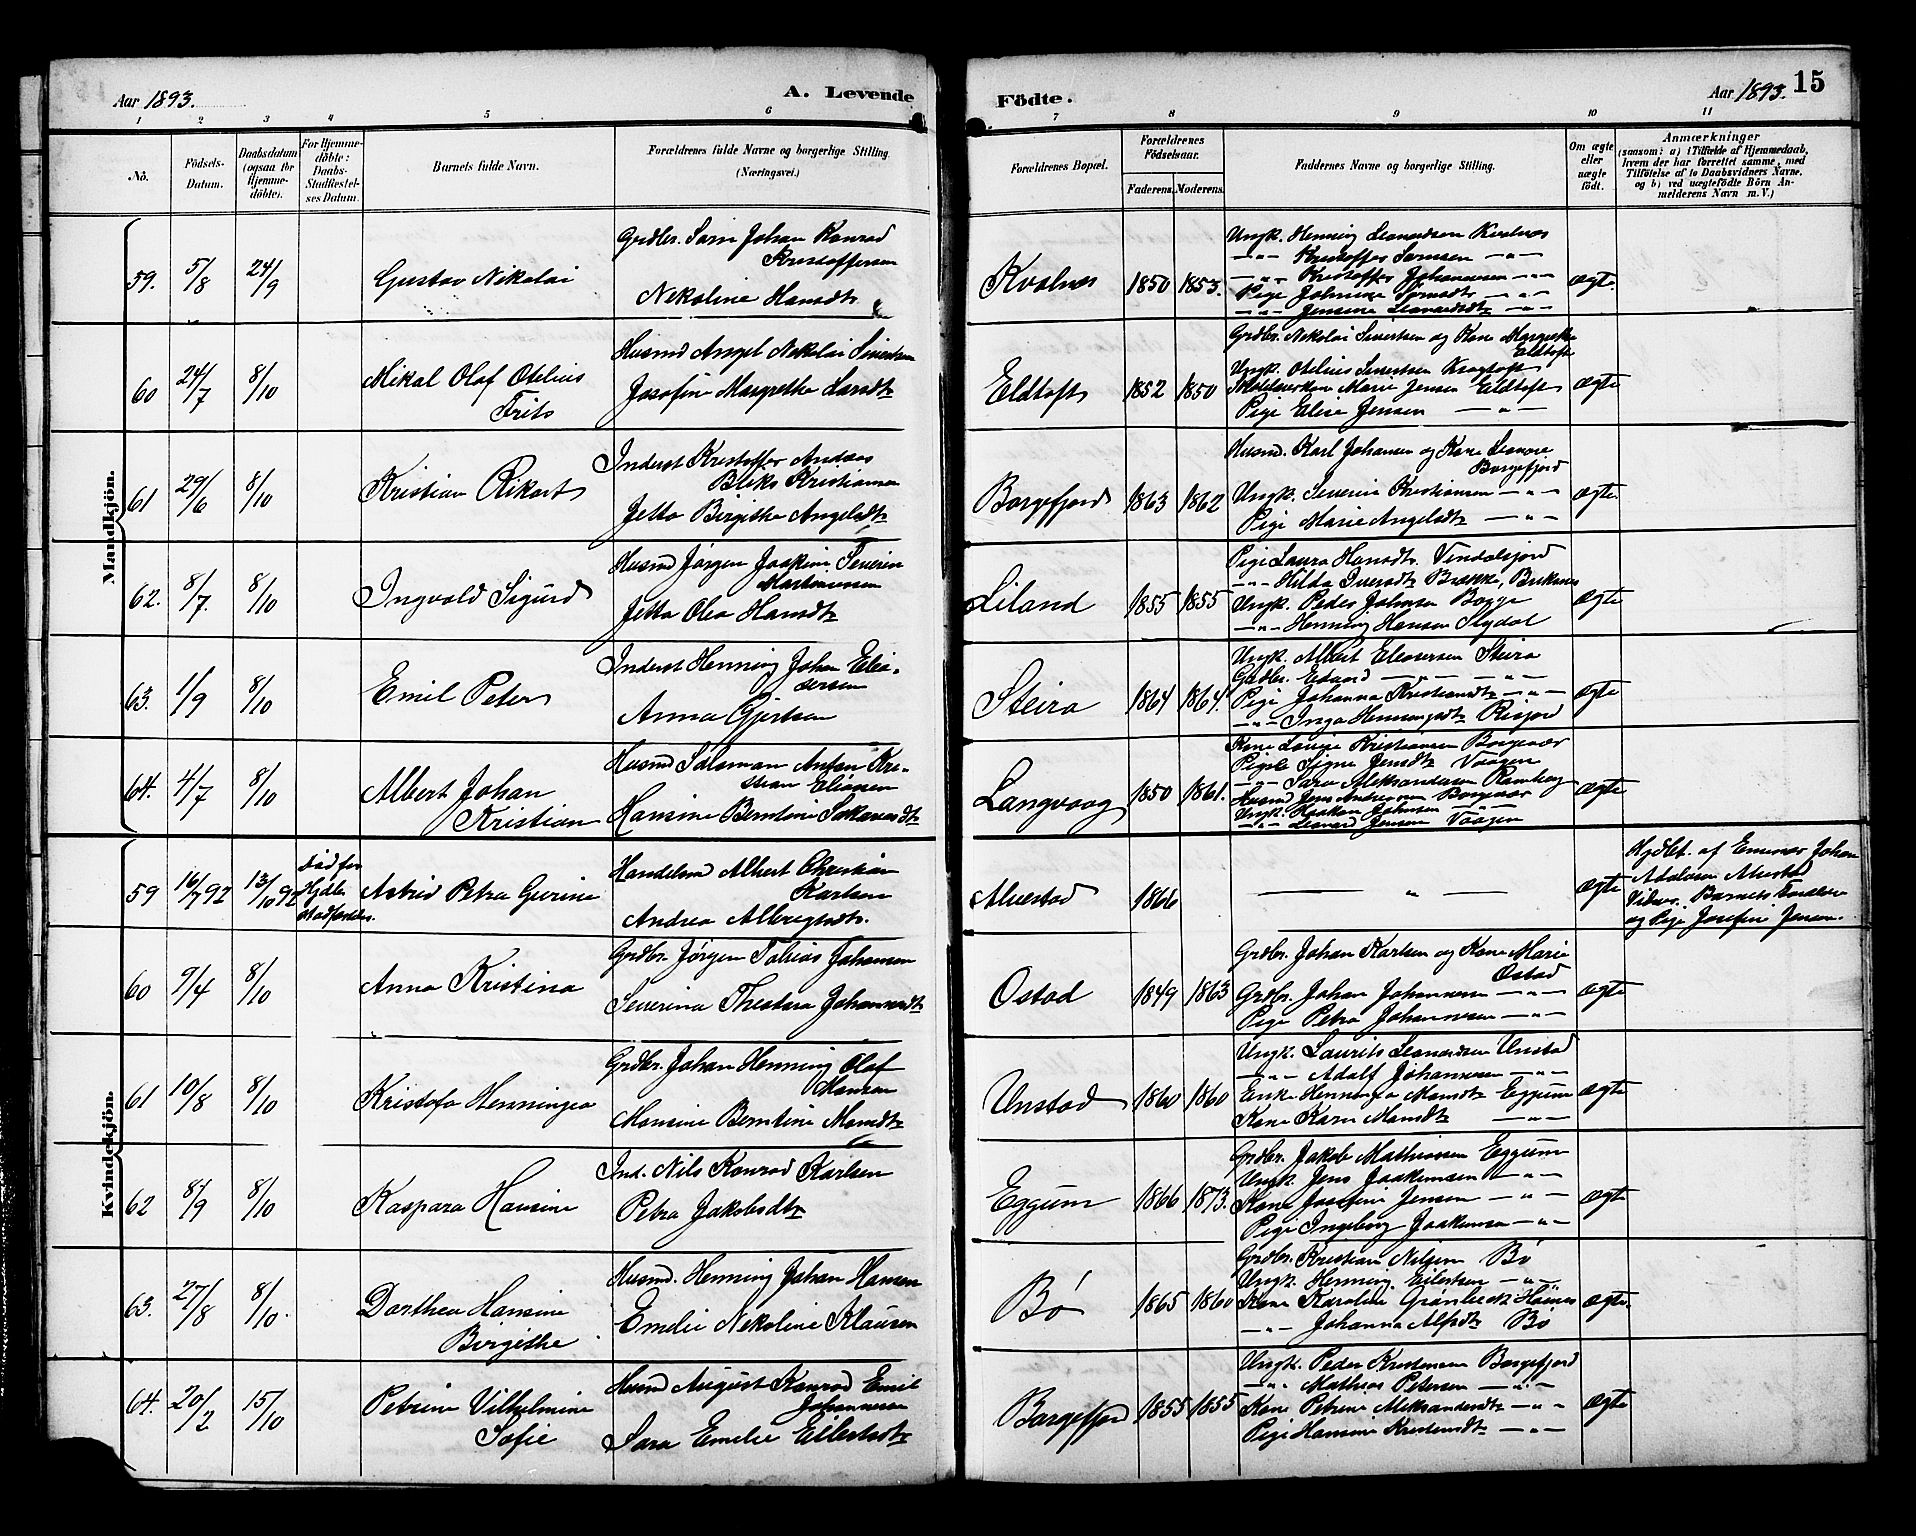 Aar 1893.
A. Levende
Födte.
Aar 1893. 15
1 2 3 4 5 6 7 8 9 10 11
No.
Födsels-
Datum.
Daabsdatum
(ogsaa for
Hjemme-
döbte).
For Hjemme-
döbte:
Daabs-
Stadfæstel-
ses Datum.
Barnets fulde Navn.
Forældrenes fulde Navne og borgerlige Stilling.
(Næringsvei.)
Forældrenes Bopæl.
Forældrenes
Födselsaar.
Faderens. Moderens.
Faddernes Navne og borgerlige Stilling.
Om ægte
eller
uægte
født.
Anmærkninger
(saasom: a) i Tilfælde af Hjemmedaab,
hvem der har forrettet samme, med
Tilföielse af to Daabsvidners Navne,
og b) ved uægtefödte Börn An-
melderens Navn m. V.)
Mandkjön.
59. 5/8 24/9 Gustav Nikolai
Grdbr. Sørn Johan Konrad
Kristoffersen
Nikoline Hansdtr
Kvalnes 1850 1853.
Ungk. Henning Leonardsen Kvalnes
—"— Kristoffer Sørnsen —"—
—"— Kristoffer Johannesen —"—
Pige Johnine Sørnsdtr —"—
—"— Jensine Leonardsdtr —"—
ægte.
60 24/7 8/10 Mikal Olaf Otelius
Frits
Husmd Angel Nikolai Sivertsen
Josefine Margrethe Larsdtr
Eldtoft 1852 1850
Grdbr. Nikolai Sivertsen og Kone Margrethe
Eldtoft
Ungk. Otelius Sivertsen Kragtoft
Marie Jensen Eldtoft
Pige Elise Jensen —"—
ægte
61 29/6 8/10 Kristian Rikart
Inderst Kristoffer Andreas
Bliks Kristiansen
Jetta Birgithe Angelsdtr
Borgefjord 1863 1862
Husmd. Karl Johansen og Kone Leonore
Borgefjord
Ungk. Severin Kristiansen —"—
Pige Marie Angelsdtr —"—
ægte
62. 8/7. 8/10 Ingvald Sigurd
Husmd Jørgen Joakim Severin
Martinussen
Jetta Olea Hansdtr
Liland 1855 1855
Pige Laura Hansdtr. Vendalsjord
—"— Hilda Iversdtr Brække, Buksnes
Ungk. Peder Johnsen Bogge
—"— Henning Hansen Slydal
ægte
63. 1/9 8/10 Emil Peter
Inderst Henning Johan Elea-
sersen
Anna Gjertsen
Steira 1864 1864.
Ungk. Albert Eleasersen Steira
Grdbr. Edvard —"— —"—
Pige Johanna Kristiansdtr —"—
—"— Inga Henningsdtr Risjord
ægte
64. 4/7 8/10 Albert Johan
Kristian
Husmd Salomon Antan Kri-
stian Eliassen
Hansine Berntine Sakariasdtr
Langvaag 1850 1861.
Kone Lovise Kristiansen Borgevær
Pige Signe Jensdtr Vaagen
—"— Sara Aleksandersen Ramberg
Husmd Jens Andreassen Borgevær
Ungk. Haakon Johnsen —"—
—"— Leonard Jensen Vaagen
ægte
Kvindekjön.
59 16/7 92 13/10 92
Død før
Hjdbs
stadfæstelse.
Astrid Petra Gurine
Handelsmd Albert Christian
Karlsen
Andrea Albregtsdtr.
Alvestad 1866
— " —
ægte
Hjdbt. af Emmar Johan
Adolsen Alvestad
Vidner. Barnets Forældre
og Pige Josefine Jensen.
60 9/4 8/10 Anna Kristina
Grdbr. Jørgen Tobias Johansen
Severina Theodora Johannesdtr
Ostad 1849 1863
Grdbr. Johan Karlsen og Kone Marie
Ostad
Grdbr. Johan Johannesen —"—
Pige Petra Johannesen —"—
ægte
61 10/8 8/10 Kristofa Henningea
Grdbr. Johan Henning Olaf
Hansen
Hansine Berntine Hansdtr
Unstad 1860 1860
Ungk. Laurits Leonardsen Unstad
—"— Adolf Johannesen —"—
Enke Henninga Hansdtr Eggum
Kone Karn Hansdtr —"—
ægte
62 8/9 8/10 Kaspara Hansine
Ind. Nils Konrad Karlsen
Petra Jakobsdtr
Eggum 1866 1873.
Grdbr. Jakob Mathiassen Eggum
Ungk. Jens Joakimsen —"—
Kone Josefine Jensen —"—
Pige Ingeborg Joakimsen —"—
ægte
63. 27/8 8/10. Dorthea Hansine
Birgithe
Husmd. Henning Johan Hansen
Emelie Nikoline Klausen
Bø 1865 1860
Grdbr. Kristian Nilsen Bø
Ungk. Henning Eilertsen —"—
Kone Karoline Grønbeck Høines
—"— Johanna Alfsdtr Bø
ægte.
64. 20/2 15/10 Petrine Vilhelmine
Sofie
Husmd August Konrad Emil
Johannesen
Sara Emelie Eilertsdtr
Borgefjor 1855 1855
Ungk. Peder Kristensen Borgefjord
—"— Mathias Petersen —"—
Kone Petrine Aleksandersdtr —"—
Pige Hansine Kristensdtr —"—
ægte